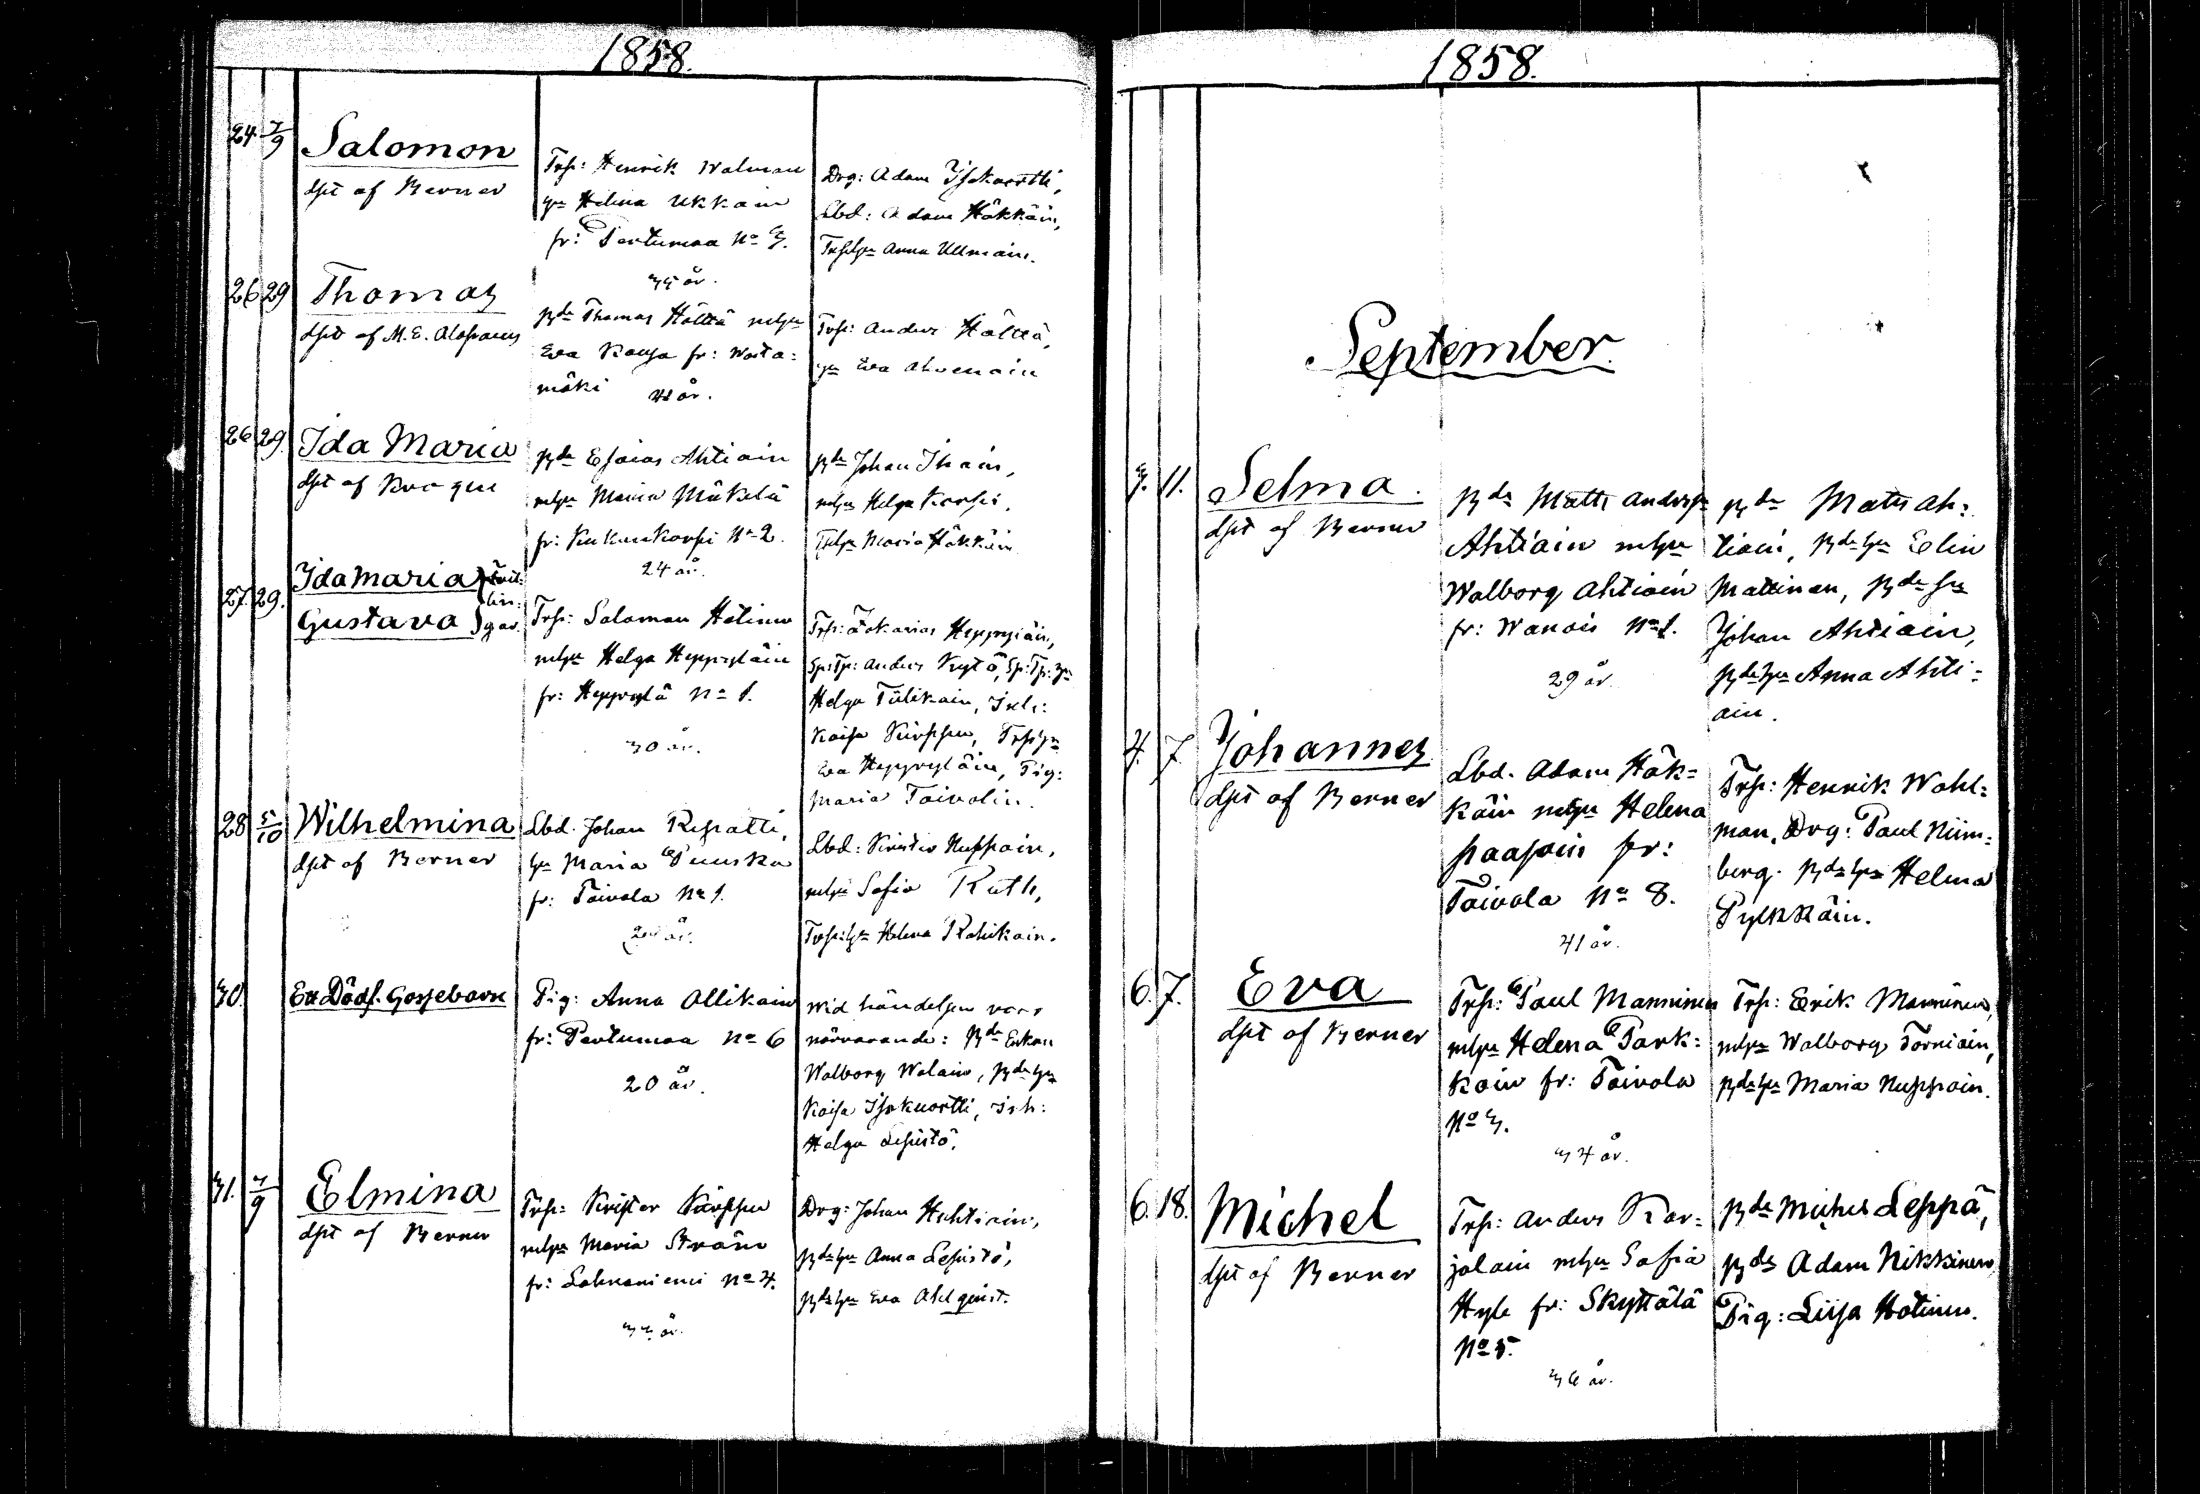 1858.
24. 7/9 Salomon
dpt af Berner
Trp: Henrik Walman
Hu Helena Ukkain
fr: Pertumaa No 3.
35 år.
Drg: Adam Isokuortti,
Lbd: Adam Häkkäin,
Anna Ullmain.
26 29 Thomas
dpt af M. E. Alopaeus
Bde Thomas Hölttä mhu
Eva Kausa fr: Warta:
mäki
år.
Trp: Anders Hölttä,
hu Eva Ahvenain
26 29. Ida Maria
dpt af
Bde Esaias Ahtiain
mhu Maria Mäkelä
fr: Kukunkorpi No 2.
24 år.
Bde Johan Ihain,
mhu Helga Korpi,
Maria Häkkäin
27. 29. Ida Maria
Gustava
Tvil:
lin:
gar.
Trp: Salomon Hotinen
mhu Helga Heppyläin
fr: Heppylä No 1.
30 år.
Trp: Zakarias Heppyläin,
Helga Tiilikain,
Kaisa
Eva Heppyläin, Pig:
Maria Toivolin.
28 5/10 Wilhelmina
dpt af Berner
Lbd. Johan Repatti,
hu Maria Puuska
fr: Toivola No 1.
år.
Lbd: Krister Nuppoin,
mhu Sofia Ruth,
Trp:hu Helena Rahikain.
30. Ett Dödf. Gossebarn
Pig: Anna Ollikain
fr: Pertumaa No 6
20 år.
Wid händelsen voro
närvarande: Bde Enkan
Walborg Walain, Bde hu
Kaisa Isokuortti, Inh:
Helga Lepistö.
31. 7/9 Elmina
dpt af Berner
Trp: Krister Kärppu
mhu Maria Ström
fr: Lahnaniemi No 4.
33 år.
Drg: Johan Huhtiain,
Bde hu Anna Lepistö,
Bde hu Eva Ahlqvist.
1858.
September.
3. 11. Selma.
dpt af Berner
Bde Matts Anderss
Ahtiain mhu
Walborg Ahtiain
fr: Wanois No 1.
29 år.
Bde Matts Ah:
tiain, Bde hu Elin
Mattinen, Bde
Johan Ahtiain,
Bde hu Anna Ahti:
ain.
4. 7 Johannes
dpt af Berner
Lbd. Adam Häk:
käin mhu Helena
Paasoin fr:
Toivola No 8.
41 år.
Trp: Henrik Wahl:
man, Drg: Paul Niim:
berg. Bde hu Helena
Pylkkäin.
6. 7. Eva
dpt af Berner
Trp: Paul Manninen
mhu Helena Park:
kain fr: Toivola
No 3.
34 år.
Trp: Erik Manninen,
mhu Walborg Torniain,
Bde hu Maria Nuppoin.
6. 18. Michel
dpt af Berner
Trp: Anders Kar:
jalain mhu Sofia
Hyle fr: Skyttälä
No 5.
36 år.
Bde Michel Leppä,
Bds Adam Nikkinen,
Pig: Liisa Hotinen.